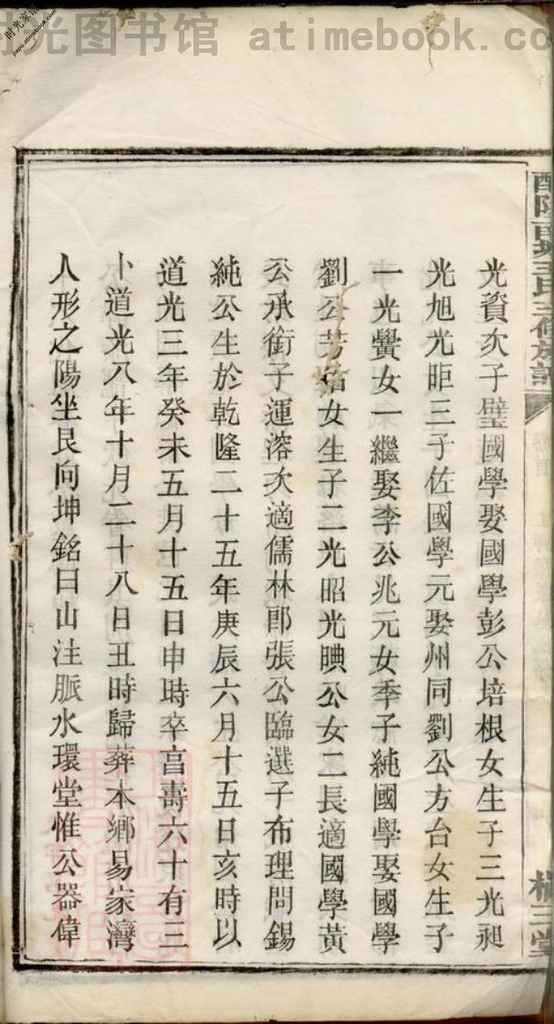 时光图书馆 atimebook.com
光資次子璧國學娶國學彭公培根女生子三光昶
光旭光昛三子佐國學元娶州同劉公方台女生子
一光黌女一繼娶李公兆元女季子純國學娶國學
劉公芳 女生子二光昭光晪公女二長適國學黃
公承銜子運溶次適儒林郎張公臨選子布理問錫
純公生於乾隆二十五年庚辰六月十五日亥時以
道光三年癸未五月十五日申時卒亯壽六十有三
卜道光八年十月二十八日丑時歸葬本鄉易家灣
人形之陽坐艮向坤銘曰山注脈水環堂惟公器偉